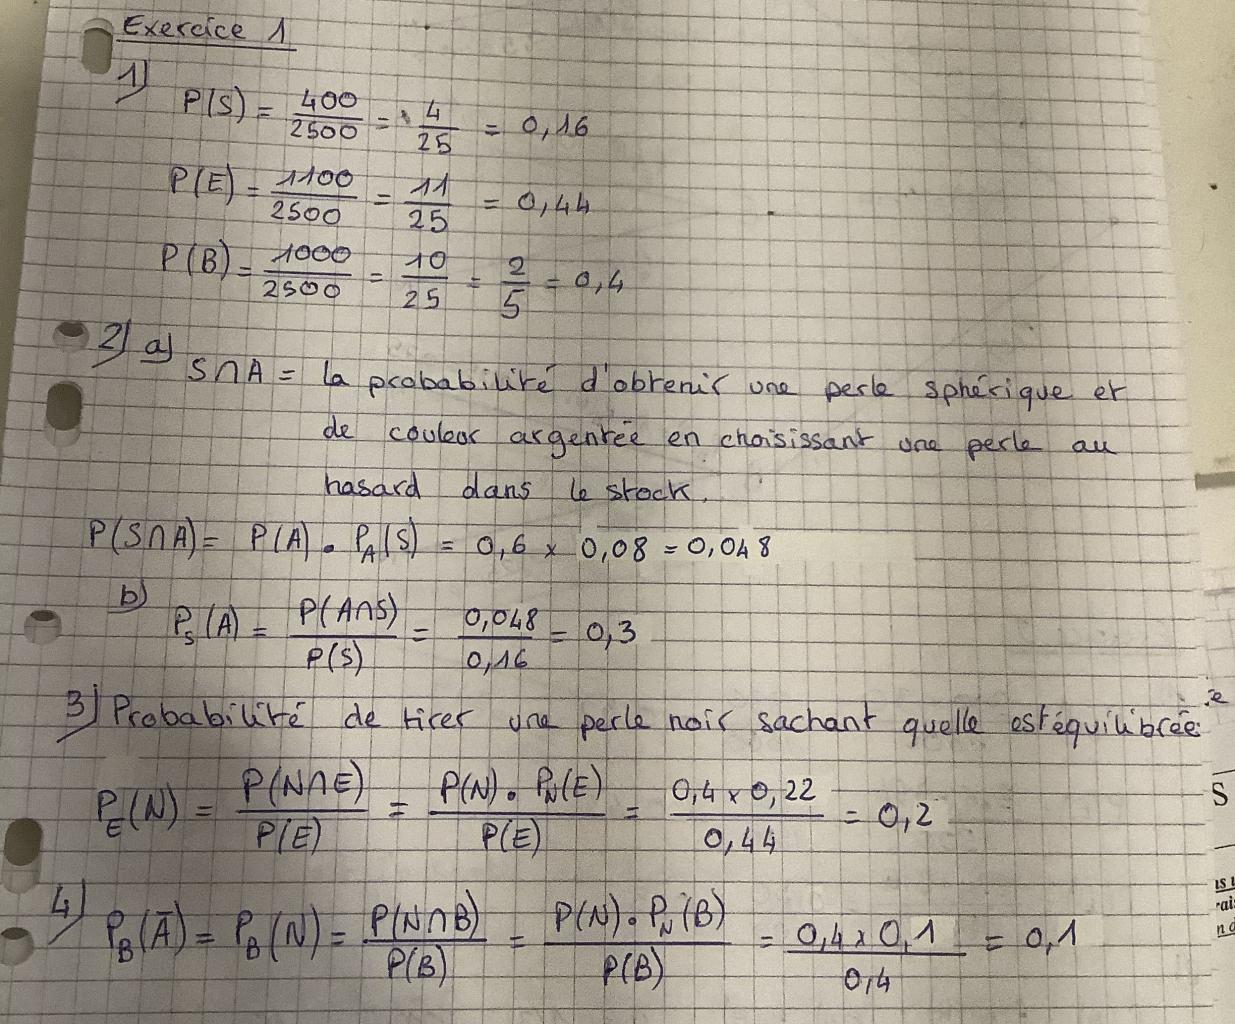 Exercice 1
1)
P(S) = 400/2500 = 4/25 = 0,16
P(E) = 1100/2500 = 11/25 = 0,44
P(B) = 1000/2500 = 10/25 = 2/5 = 0,4
2) a)
S∩A = la probabilité d'obtenir une perle sphérique et
de couleur argentée en choisissant une perle au
hasard dans le stock.
P(S∩A) = P(A) • P_A(S) = 0,6 × 0,08 = 0,048
b)
P_S(A) = P(A∩S)/P(S) = 0,048/0,16 = 0,3
3) Probabilité de tirer une perle noir sachant quelle est équilibrée:
P_E(N) = P(N∩E)/P(E) = P(N) • P_N(E)/P(E) = 0,4 × 0,22/0,44 = 0,2
4)
P_B(Ā) = P_B(N) = P(N∩B)/P(B) = P(N) • P_N(B)/P(B) = 0,4 × 0,1/0,4 = 0,1